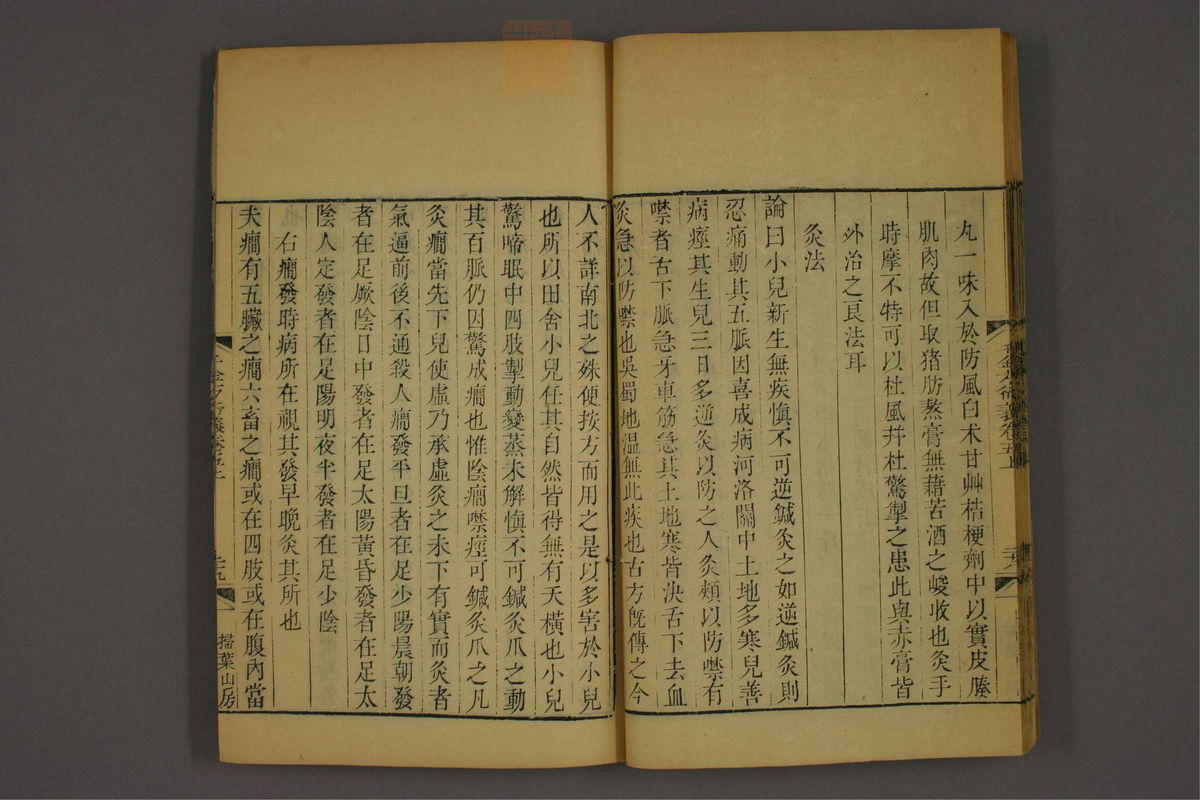 九一味入於防風白术甘艸桔梗劑中以實皮腠
肌肉故但取猪肪熬膏無藉苦酒之峻收也灸手
時摩不特可以杜風幷杜驚掣之患此與赤膏皆
外治之良法耳
灸法
論曰小兒新生無疾愼不可逆鍼灸之如逆鍼灸則
忍痛動其五脈因喜成病河洛關中土地多寒兒善
病痙其生兒三日多逆灸以防之又灸頰以防噤有
噤者舌下脈急牙車筋急其土地寒皆決舌下去血
灸急以防噤也吳蜀地溫無此疾也古方旣傳之今
人不詳南北之殊便按方而用之是以多害於小兒
也所以田舍小兒任其自然皆得無有夭橫也小兒
驚啼眠中四肢掣動變蒸未解愼不可鍼灸爪之動
其百脈仍因驚成癇也惟陰癇噤痙可鍼灸爪之凡
灸癇當先下兒使虛乃承虛灸之未下有實而灸者
氣逼前後不通殺人癇發平旦者在足少陽晨朝發
者在足厥陰日中發者在足太陽黃昏發者在足太
陰人定發者在足陽明夜半發者在足少陰
右癇發時病所在視其發早晚灸其所也
夫癇有五臟之癇六畜之癇或在四肢或在腹內當
掃葉山房